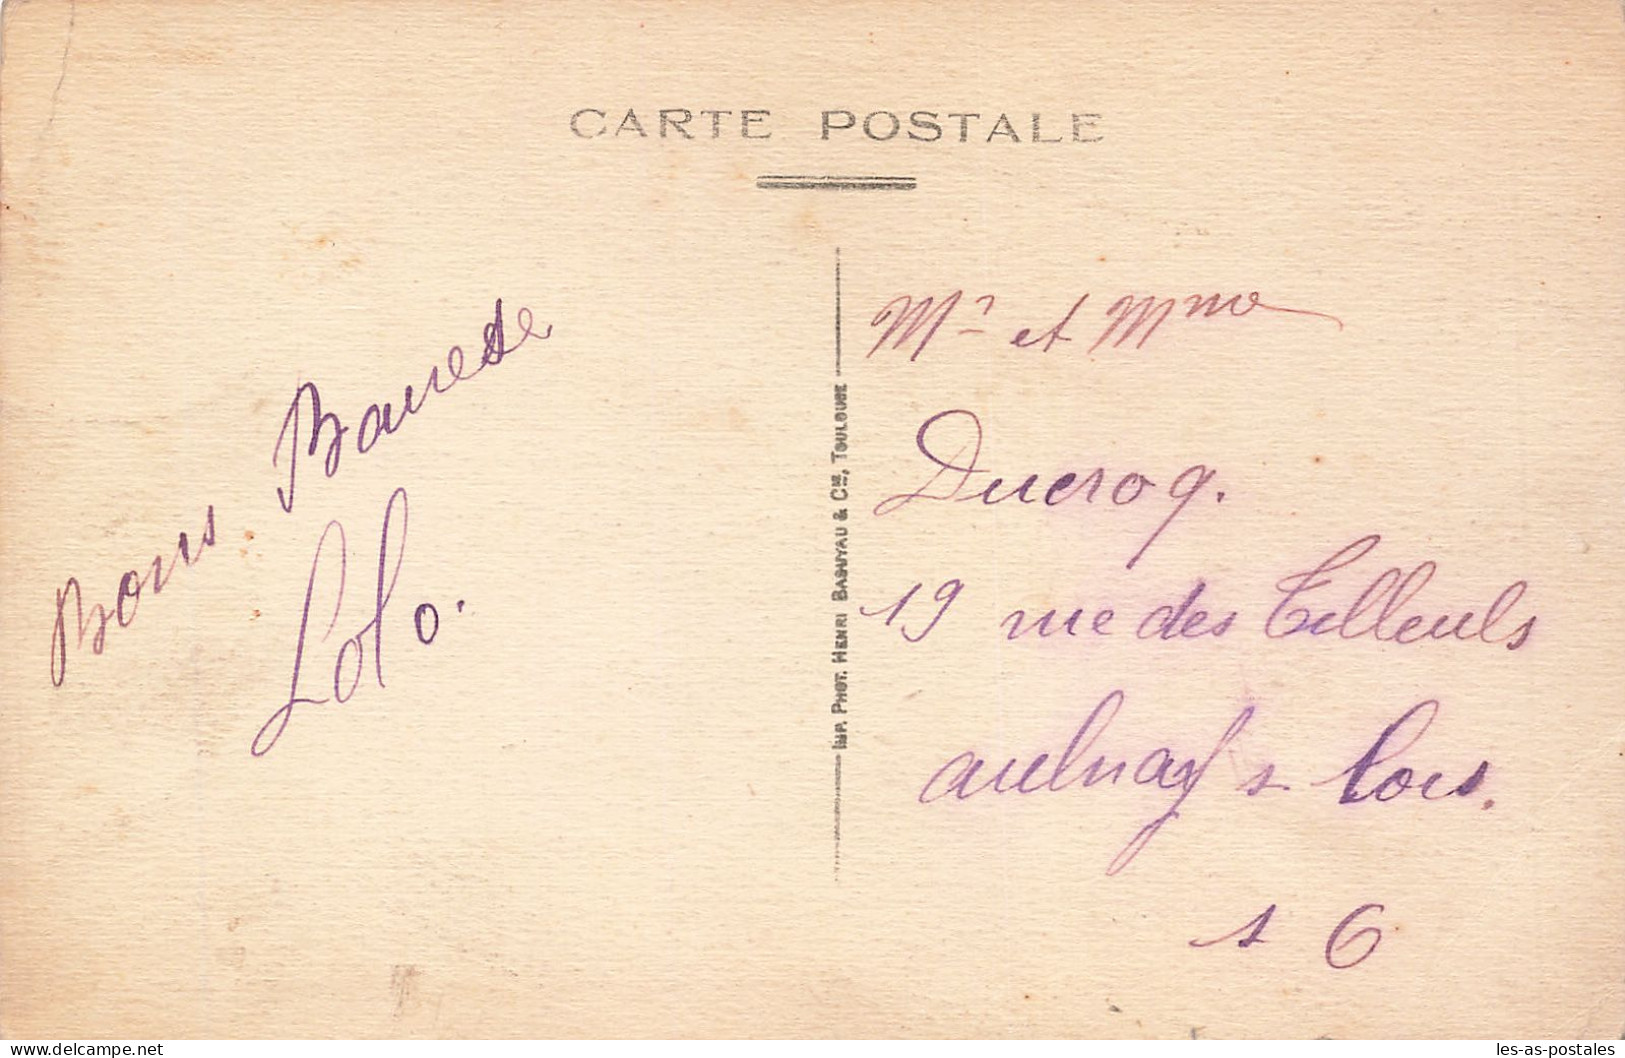 CARTE POSTALE
Bons Baises de
Lolo.
IMP. PHOT. HENRI BASUYAU & Cie, TOULOUSE
Mr et Mme
Ducroq.
19 rue des Tilleuls
aulnay s bois.
s O
les-as-postales
delcampe.net